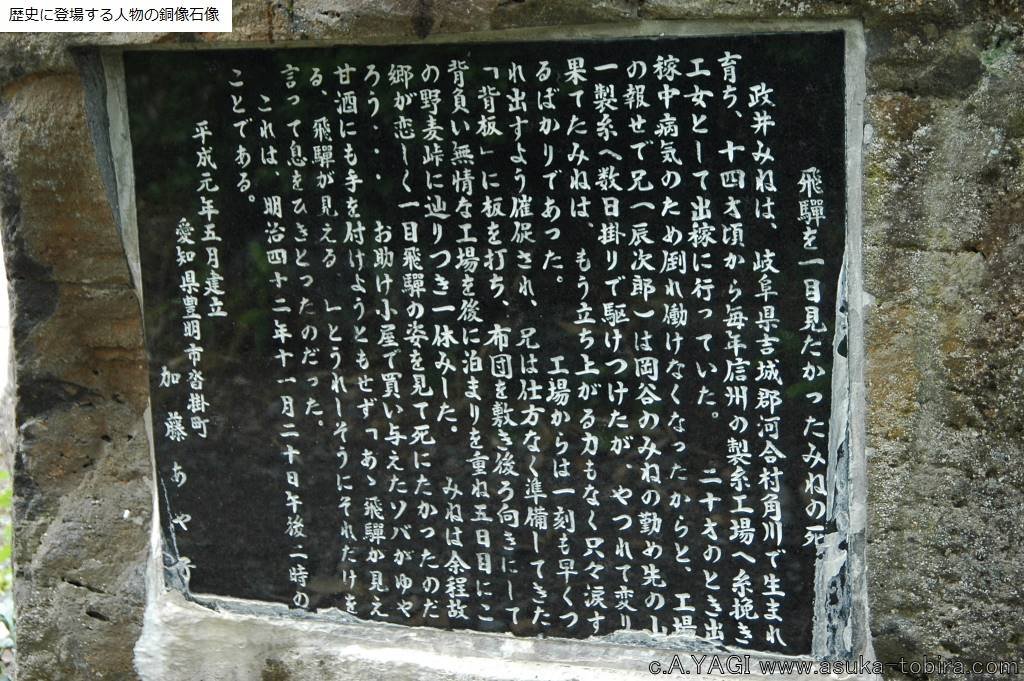 歴史に登場する人物の銅像石像
飛驒を一目見たかったみねの死
政井みねは、岐阜県吉城郡河合村角川で生まれ
育ち、十四才頃から毎年信州の製糸工場へ糸挽き
工女として出稼に行っていた。 二十才のとき出
稼中病気のため倒れ働けなくなったからと、工場
の報せで兄(辰次郎)は岡谷のみねの勤め先の山
一製糸へ数日掛りで駆けつけたが、やつれて変り
果てたみねは、もう立ち上がる力もなく只々涙す
るばかりであった。 工場からは一刻も早くつ
れ出すよう催促され、兄は仕方なく準備してきた
「背板」に板を打ち、布団を敷き後ろ向きにして
背負い無情な工場を後に泊まりを重ね五日目にこ
の野麦峠に辿りつき一休みした。 みねは余程故
郷が恋しく一日飛驒の姿を見て死にたかったのだ
ろう・・・ お助け小屋で買い与えたソバがゆや
甘酒にも手を付けようともせず「あゝ飛驒が見え
る、飛驒が見える。」とうれしそうにそれだけを
言って息をひきとったのだった。
これは、明治四十二年十一月二十日午後二時の
ことである。
平成元年五月建立
愛知県豊明市沓掛町
加藤あや子
c.A.YAGI www.asuka-tobira.com